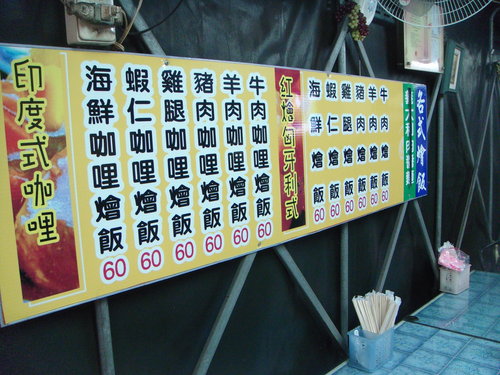 印度式咖哩
海鮮咖哩燴飯60
蝦仁咖哩燴飯60
雞腿咖哩燴飯60
豬肉咖哩燴飯60
羊肉咖哩燴飯60
牛肉咖哩燴飯60
紅燴匈牙利式
海鮮燴飯60
蝦仁燴飯60
雞腿燴飯60
豬肉燴飯60
羊肉燴飯60
牛肉燴飯60
各式燴飯